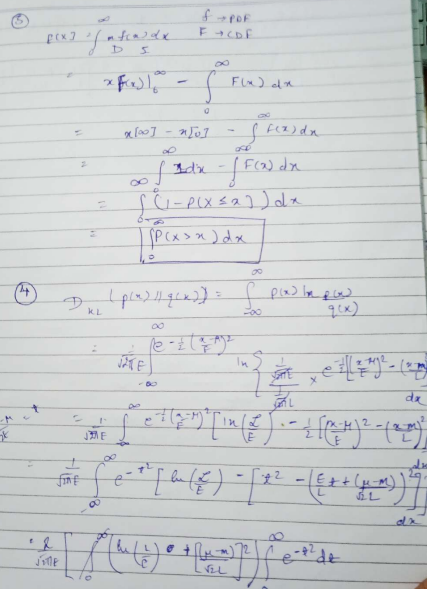 ③ f → PDF
E[X] = ∫₀^∞ x f(x) dx F → CDF
D I
= x F(x) |₀^∞ - ∫₀^∞ F(x) dx
= x[∞] - x[0] - ∫₀^∞ F(x) dx
= ∫₀^∞ 1dx - ∫₀^∞ F(x) dx
= ∫₀^∞ (1 - P(X ≤ x)) dx
= ∫₀^∞ P(X > x) dx
④ D_KL (p(x) // q(x)) = ∫_-∞^∞ p(x) ln p(x)/q(x)
= 1/√2π E ∫_-∞^∞ e^-½((x-μ)/E)² ln { (1/√2π E)/(1/√2π L) × e^-½[((x-μ)/E)² - ((x-m)/L
dx
= 1/√2π E ∫_-∞^∞ e^-½((x-μ)/E)² [ ln(L/E) - ½ [((x-μ)/E)² - ((x-m)/L)²]
dx
= 1/√2π E ∫_-∞^∞ e^-t² [ ln(L/E) - [t² - (E/L t + (μ-m)/√2L)²]]
dx
= 2/√2π E [ ∫₀^∞ (ln(L/E) + [(μ-m)/√2L]²) ∫₀^∞ e^-t² dt